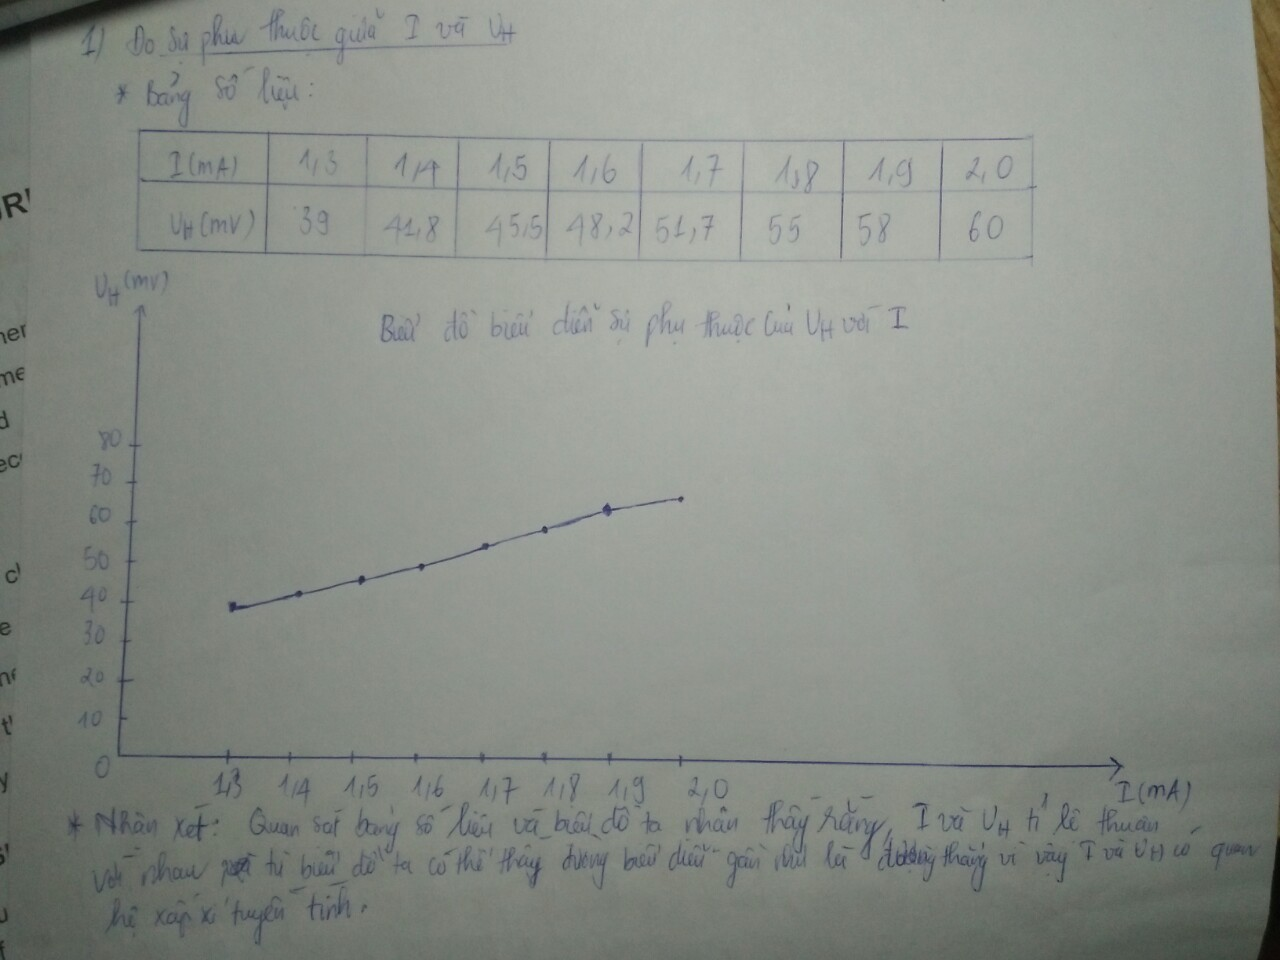 1) Đo sự phụ thuộc giữa I và UH
* Bảng số liệu:
I(mA) 1,3 1,4 1,5 1,6 1,7 1,8 1,9 2,0
UH(mV) 39 41,8 45,5 48,2 51,7 55 58 60
UH(mV)
Biểu đồ biểu diễn sự phụ thuộc của UH với I
80
70
60
50
40
30
20
10
0
1,3 1,4 1,5 1,6 1,7 1,8 1,9 2,0
I(mA)
* Nhận xét: Quan sát bảng số liệu và biểu đồ ta nhận thấy rằng, I và UH tỉ lệ thuận
với nhau từ biểu đồ ta có thể thấy đường biểu diễn gần như là đường thẳng vì vậy I và UH có quan
hệ xấp xỉ tuyến tính.